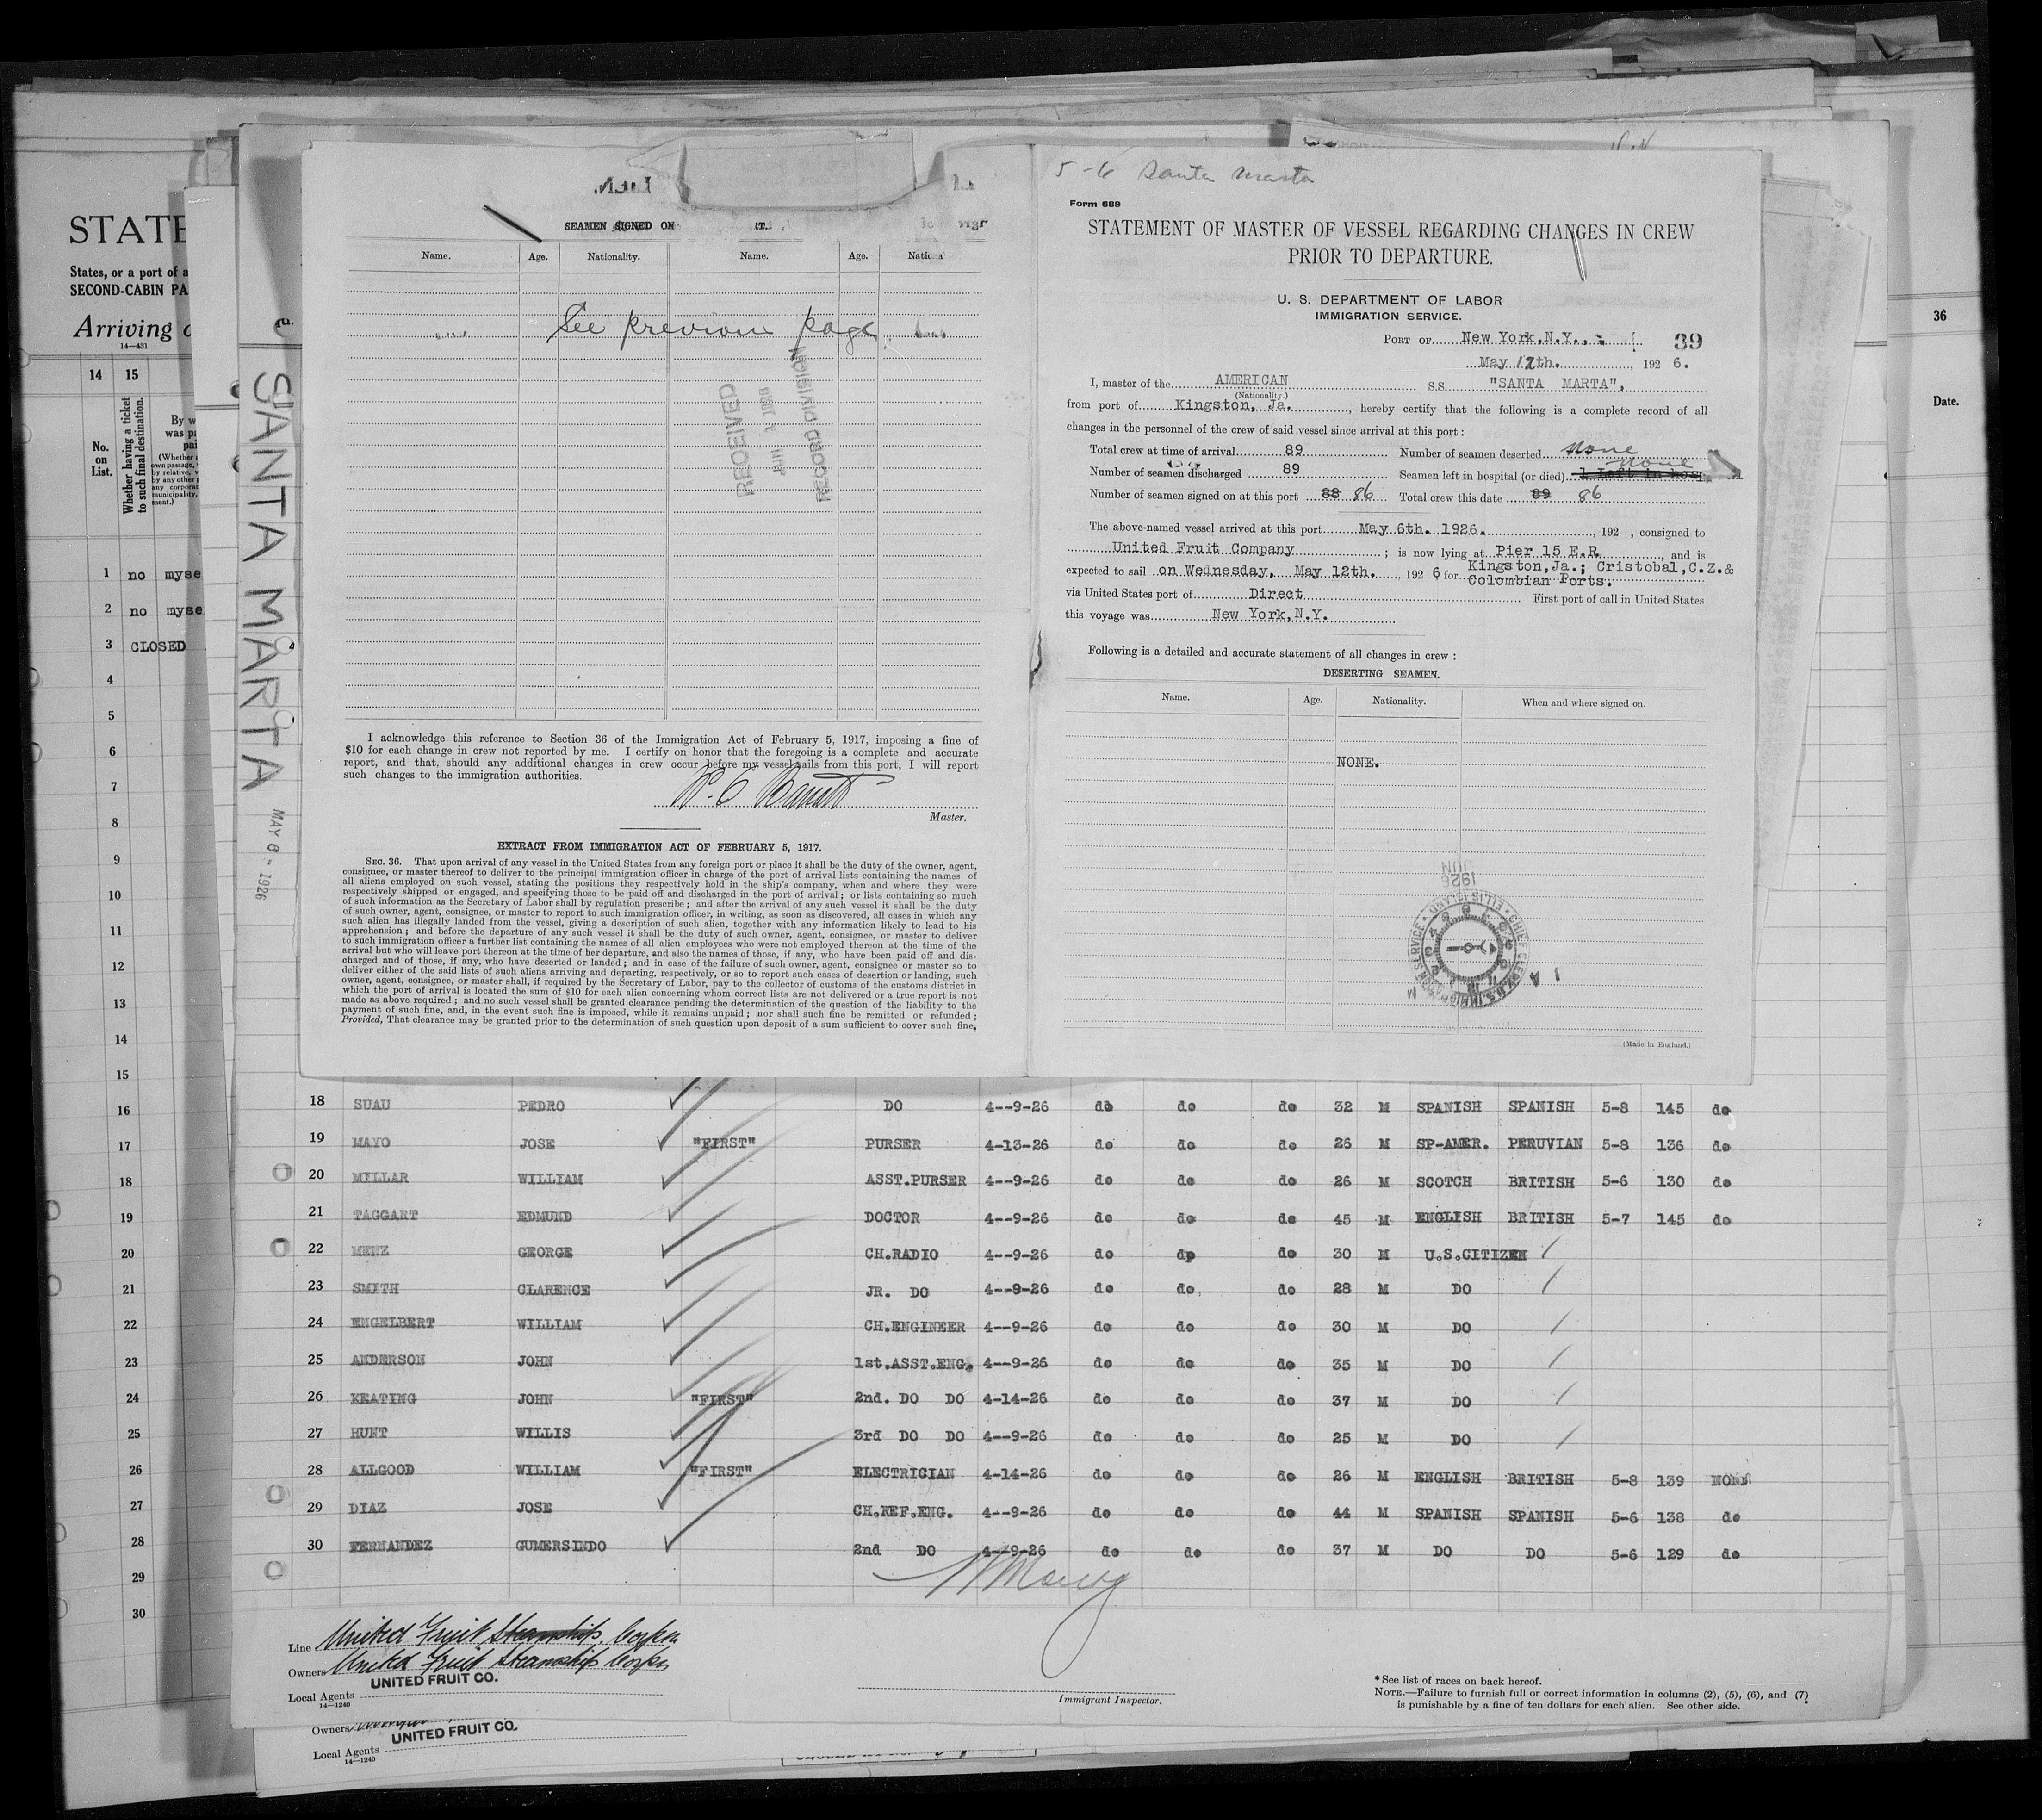 STATE
States, or a port of a
SECOND-CABIN PA
Arriving
14—431
14 15
No. on List.
Whether having a ticket to such final destination.
By w
was pa
pai
(Whether
own passage,
by relative,
by any other
any corporat
municipality,
ment.)
1 no myse
2 no myse
3 CLOSED
4
5
6
7
8
9
10
11
12
13
14
15
16
17
18
19
20
21
22
23
24
25
26
27
28
29
30
SANTA MARTA
MAY 6 - 1926
SEAMEN SIGNED ON
Name. Age. Nationality. Name. Age.
See previous page
RECEIVED
RECORD DIVISION
I acknowledge this reference to Section 36 of the Immigration Act of February 5, 1917, imposing a fine of
$10 for each change in crew not reported by me. I certify on honor that the foregoing is a complete and accurate
report, and that, should any additional changes in crew occur before my vessel sails from this port, I will report
such changes to the immigration authorities.
Master.
EXTRACT FROM IMMIGRATION ACT OF FEBRUARY 5, 1917.
SEC. 36. That upon arrival of any vessel in the United States from any foreign port or place it shall be the duty of the owner, agent,
consignee, or master thereof to deliver to the principal immigration officer in charge of the port of arrival lists containing the names of
all aliens employed on such vessel, stating the positions they respectively hold in the ship's company, when and where they were
respectively shipped or engaged, and specifying those to be paid off and discharged in the port of arrival; or lists containing so much
of such information as the Secretary of Labor shall by regulation prescribe; and after the arrival of any such vessel it shall be the duty
of such owner, agent, consignee, or master to report to such immigration officer, in writing, as soon as discovered, all cases in which any
such alien has illegally landed from the vessel, giving a description of such alien, together with any information likely to lead to his
apprehension; and before the departure of any such vessel it shall be the duty of such owner, agent, consignee, or master to deliver
to such immigration officer a further list containing the names of all alien employees who were not employed thereon at the time of the
arrival but who will leave port thereon at the time of her departure, and also the names of those, if any, who have been paid off and dis-
charged and of those, if any, who have deserted or landed; and in case of the failure of such owner, agent, consignee or master so to
deliver either of the said lists of such aliens arriving and departing, respectively, or so to report such cases of desertion or landing, such
owner, agent, consignee, or master shall, if required by the Secretary of Labor, pay to the collector of customs of the customs district in
which the port of arrival is located the sum of $10 for each alien concerning whom correct lists are not delivered or a true report is not
made as above required; and no such vessel shall be granted clearance pending the determination of the question of the liability to the
payment of such fine, and, in the event such fine is imposed, while it remains unpaid; nor shall such fine be remitted or refunded;
Provided, That clearance may be granted prior to the determination of such question upon deposit of a sum sufficient to cover such fine,
5-6 Santa Marta
Form 689
STATEMENT OF MASTER OF VESSEL REGARDING CHANGES IN CREW
PRIOR TO DEPARTURE.
U. S. DEPARTMENT OF LABOR
IMMIGRATION SERVICE.
PORT OF New York,N.Y., 39
May 12th. , 192 6.
I, master of the AMERICAN S.S. "SANTA MARTA",
(Nationality.)
from port of Kingston, Ja. , hereby certify that the following is a complete record of all
changes in the personnel of the crew of said vessel since arrival at this port:
Total crew at time of arrival 89 Number of seamen deserted none
Number of seamen discharged 89 Seamen left in hospital (or died) 1 Left in Hosp none
Number of seamen signed on at this port 88 86 Total crew this date 89 86
The above-named vessel arrived at this port May 6th. 1926. , 192 , consigned to
United Fruit Company ; is now lying at Pier 15 E.R. , and is
expected to sail on Wednesday, May 12th. , 192 6 for Kingston,Ja.; Cristobal,C.Z.&
Colombian Ports.
via United States port of Direct First port of call in United States
this voyage was New York,N.Y.
Following is a detailed and accurate statement of all changes in crew:
DESERTING SEAMEN.
Name. Age. Nationality. When and where signed on.
NONE.
JUN
1926
CHIEF CLERK, U.S. IMMIGRATION SERVICE
ELLIS ISLAND
(Made in England.)
36
Date.
18 SUAU PEDRO DO 4--9-26 do do do 32 M SPANISH SPANISH 5-8 145 do
19 MAYO JOSE "FIRST" PURSER 4-13-26 do do do 26 M SP-AMER. PERUVIAN 5-8 136 do
20 MILLAR WILLIAM ASST.PURSER 4--9-26 do do do 26 M SCOTCH BRITISH 5-6 130 do
21 TAGGART EDMUND DOCTOR 4--9-26 do do do 45 M ENGLISH BRITISH 5-7 145 do
22 MENZ GEORGE CH.RADIO 4--9-26 do do do 30 M U.S.CITIZEN
23 SMITH CLARENCE JR. DO 4--9-26 do do do 28 M DO
24 ENGELBERT WILLIAM CH.ENGINEER 4--9-26 do do do 30 M DO
25 ANDERSON JOHN 1st.ASST.ENG. 4--9-26 do do do 35 M DO
26 KEATING JOHN "FIRST" 2nd. DO DO 4-14-26 do do do 37 M DO
27 HUNT WILLIS 3rd DO DO 4--9-26 do do do 25 M DO
28 ALLGOOD WILLIAM "FIRST" ELECTRICIAN 4-14-26 do do do 26 M ENGLISH BRITISH 5-8 139 NONE
29 DIAZ JOSE CH.REF.ENG. 4--9-26 do do do 44 M SPANISH SPANISH 5-6 138 do
30 FERNANDEZ GUMERSINDO 2nd DO 4--9-26 do do do 37 M DO DO 5-6 129 do
Line United Fruit Steamship Corpn
Owners United Fruit Steamship Corpn
Local Agents UNITED FRUIT CO.
14—1240
Immigrant Inspector.
*See list of races on back hereof.
NOTE.—Failure to furnish full or correct information in columns (2), (5), (6), and (7)
is punishable by a fine of ten dollars for each alien. See other side.
Owners
Local Agents UNITED FRUIT CO.
14—1240